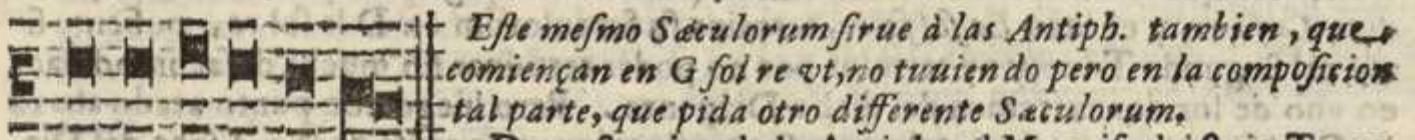 Eſte meſmo Sæculorum ſirue à las Antiph. tambien, que
comiençan en G ſol re vt, no tuuiendo pero en la compoſicion
tal parte, que pida otro differente Sæculorum.